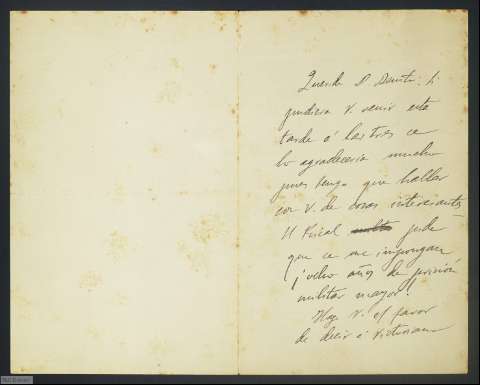 Querido D. Benito: si
pudiera V. venir esta
tarde á las tres se
lo agradecería mucho
pues tengo que hablar
con V. de cosas interesantes
El Fiscal pide
que se me impongan
¡ocho años de prisión
militar mayor!
Haga V. el favor
de decir á Victoriano